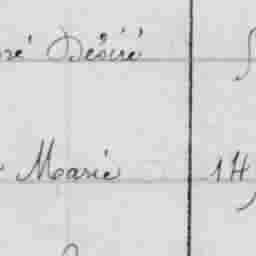 Désiré
Marie 1H